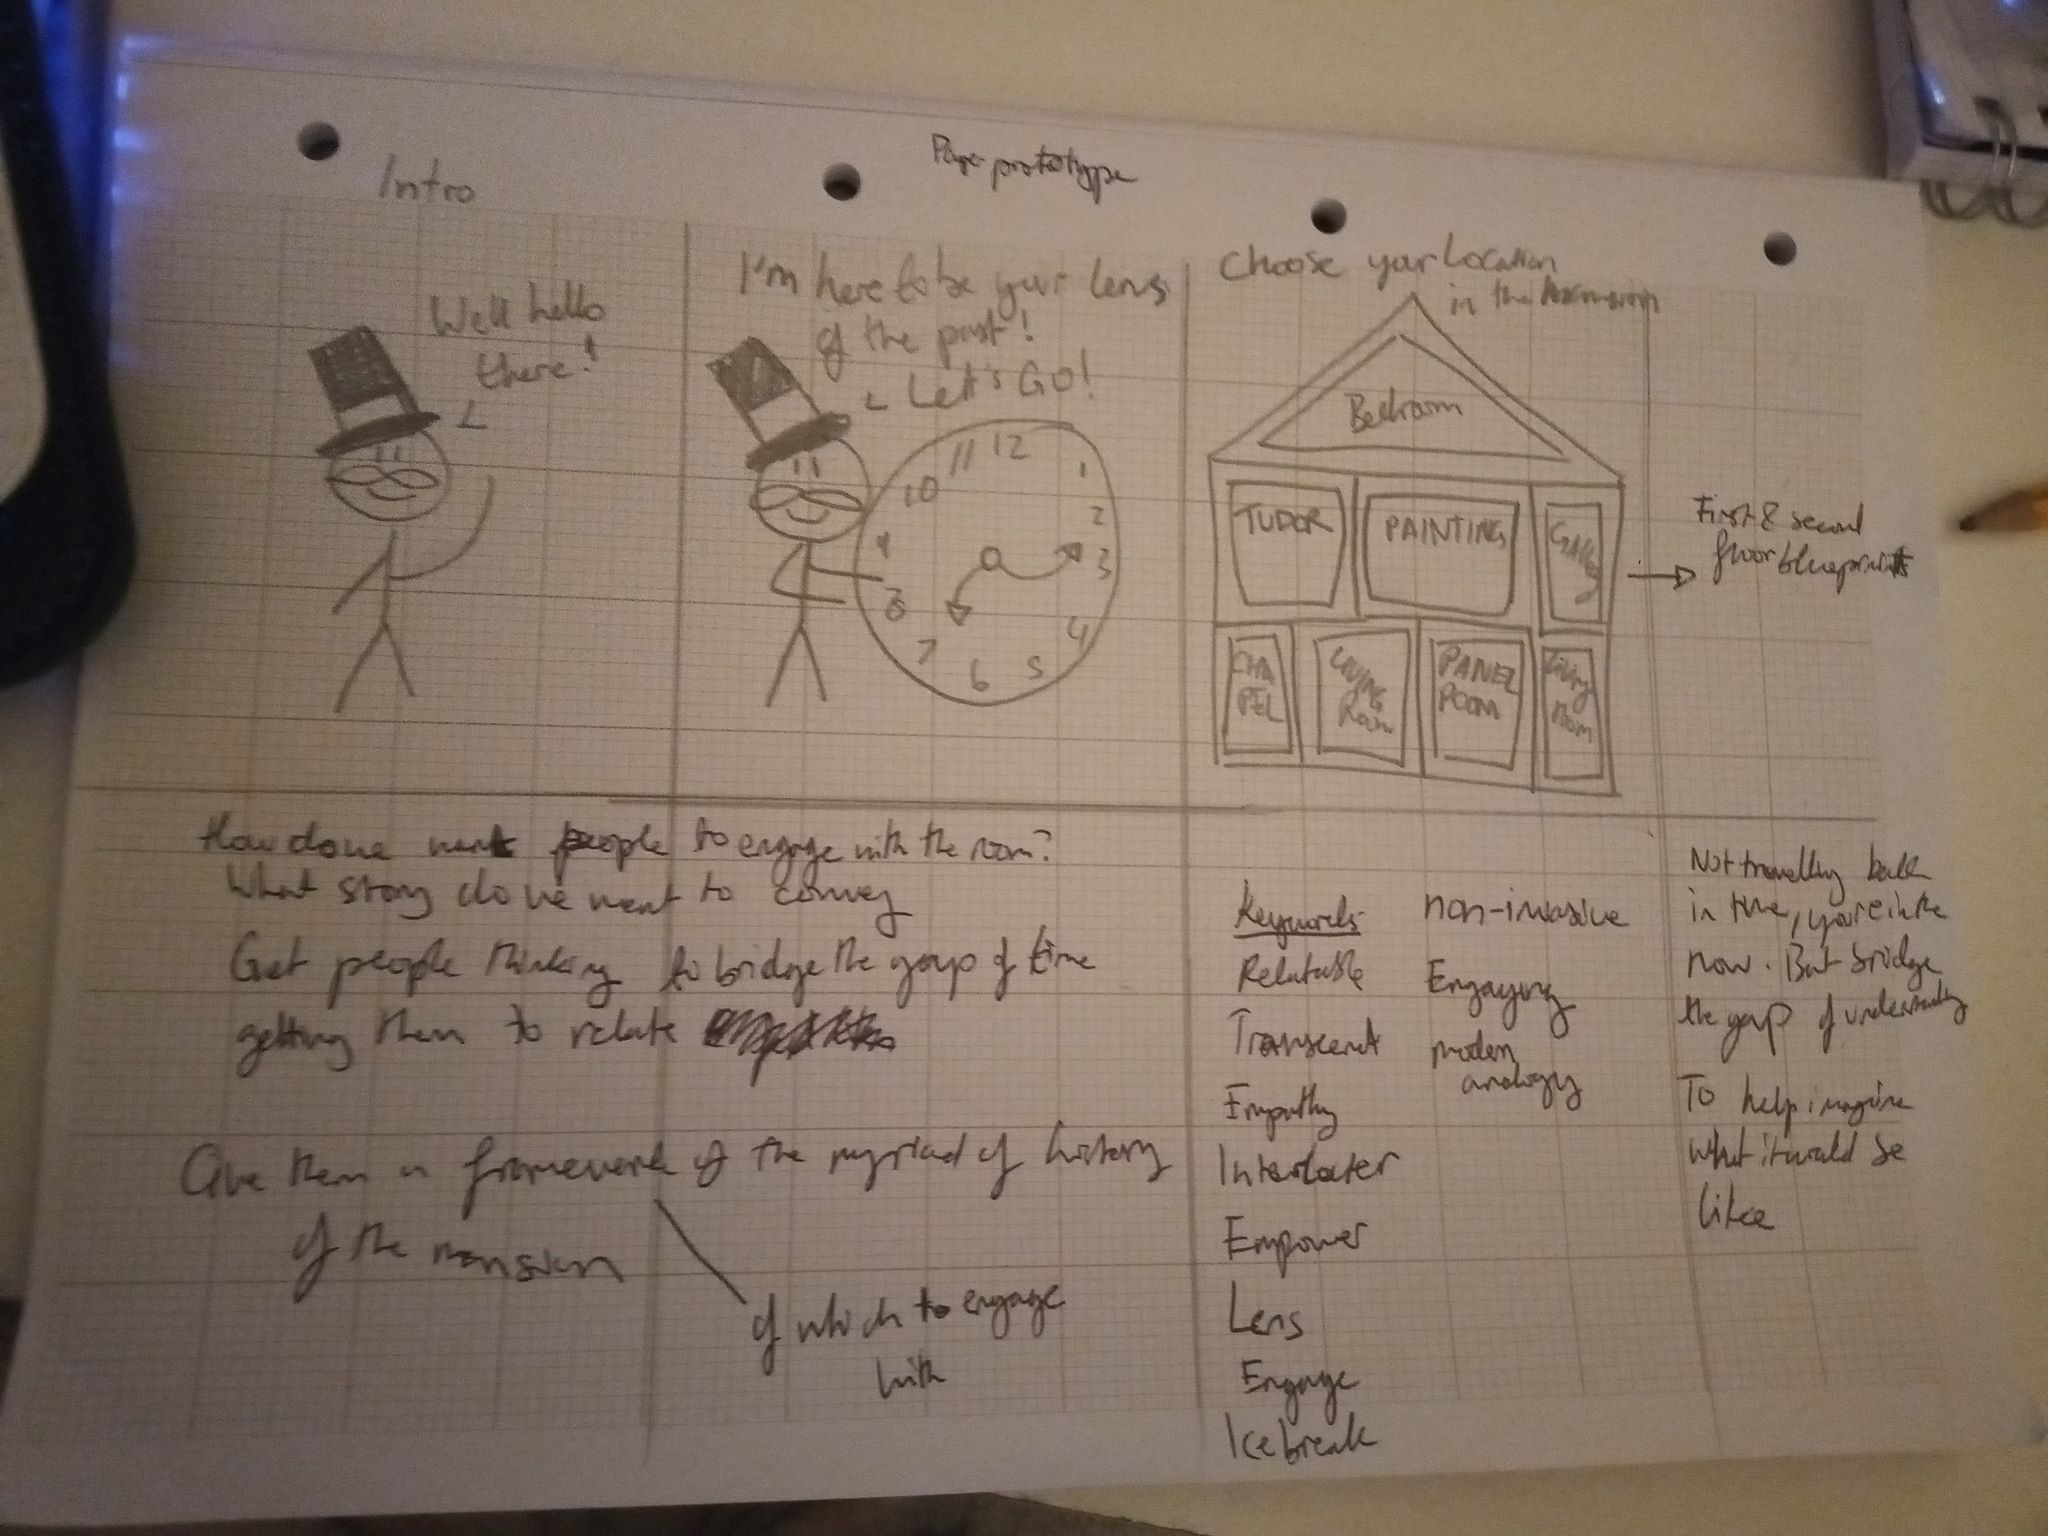 Intro
Paper prototype
Well hello
there!
I'm here to be your lens
of the past!
Let's GO!
12
1
2
3
4
5
6
7
8
9
10
11
Choose your Location
in the
Bedroom
TUDOR
PAINTING
CHA
PEL
LIVING
Room
PANEL
ROOM
Living
room
First & second
floor blueprints
How do we want people to engage with the room?
What story do we want to convey
Get people thinking to bridge the gap of time
getting them to relate
Give them a framework of the myriad of history
of the mansion
of which to engage
with
Keywords
Relatable
Transcend
Empathy
Interlocuter
Empower
Lens
Engage
Icebreak
non-invasive
Engaging
modern
analogy
Not travelling back
in time, you're in the
now. But bridge
the gap of understanding
To help imagine
what it would be
like